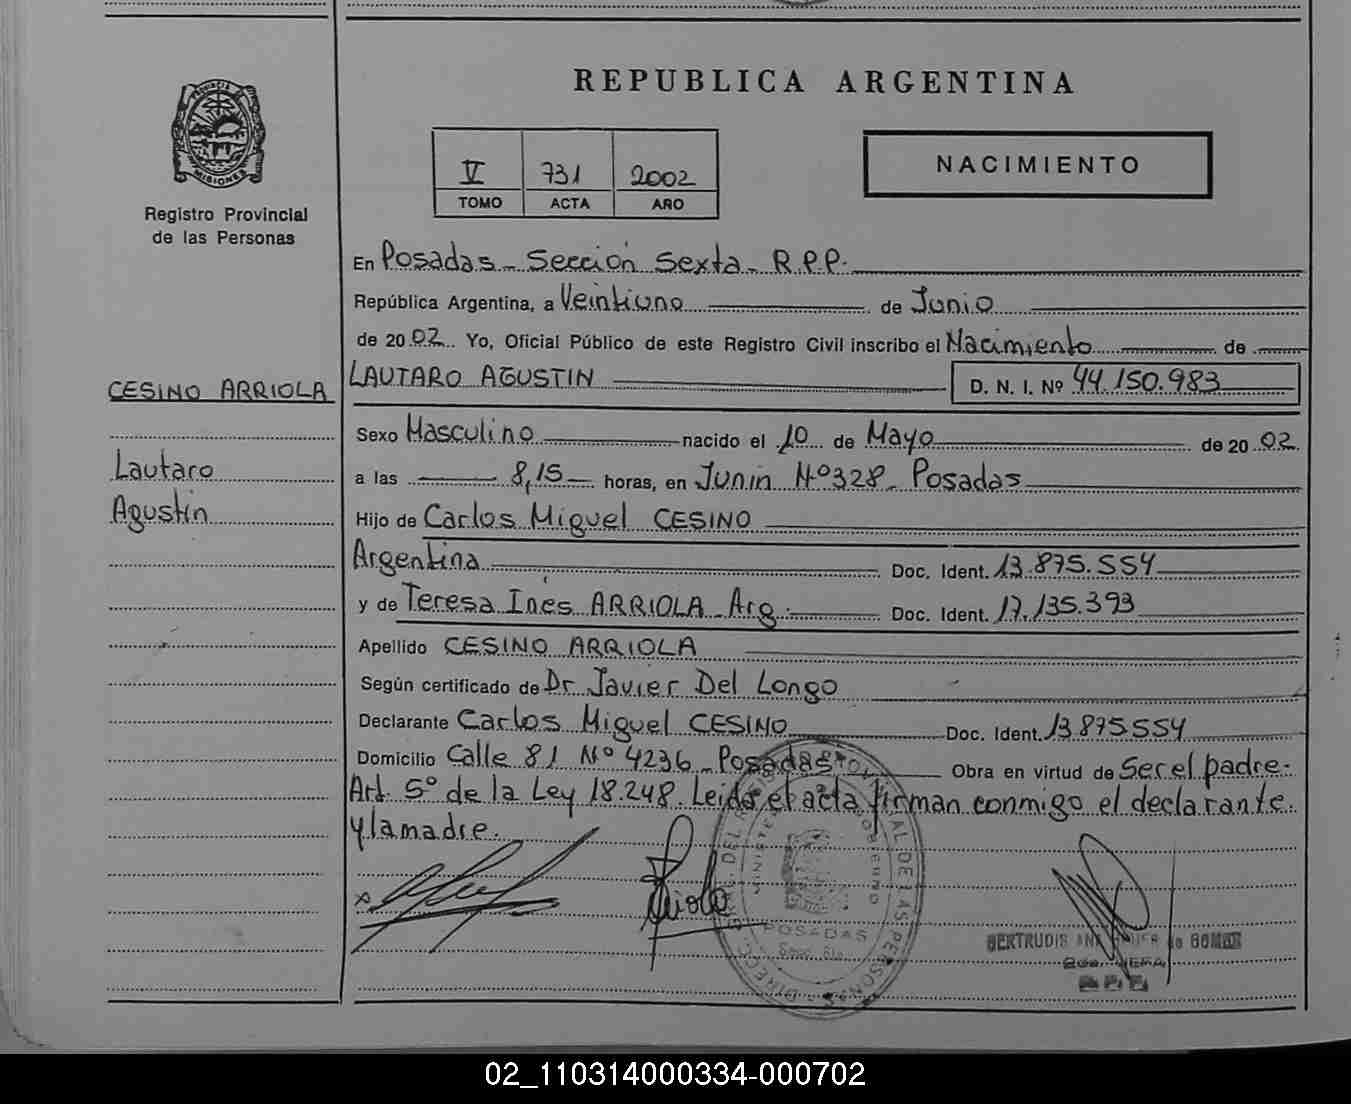 REPUBLICA ARGENTINA
PROVINCIA DE
MISIONES
Registro Provincial
de las Personas
V 731 2002
TOMO ACTA AÑO
NACIMIENTO
En Posadas - Sección Sexta - R.P.P.
República Argentina, a Veintiuno de Junio
de 2002 Yo, Oficial Público de este Registro Civil inscribo el Nacimiento de
LAUTARO AGUSTIN D. N. I. Nº 44.150.983
CESINO ARRIOLA
Lautaro
Agustin
Sexo Masculino nacido el 10 de Mayo de 2002
a las 8,15 horas, en Junin Nº328 - Posadas
Hijo de Carlos Miguel CESINO
Argentina Doc. Ident. 13.875.554
y de Teresa Inés ARRIOLA - Arg. Doc. Ident. 17.135.393
Apellido CESINO ARRIOLA
Según certificado de Dr Javier Del Longo
Declarante Carlos Miguel CESINO Doc. Ident. 13.875.554
Domicilio Calle 81 Nº 4236 - Posadas Obra en virtud de Ser el padre.
Art. 5º de la Ley 18.248. Leida el acta firman conmigo el declarante
y la madre.
DIREC. GRAL. DEL REGISTRO PROVINCIAL DE LAS PERSONAS
MINISTERIO GOBIERNO
POSADAS
GERTRUDIS
2da. JEFA
02_110314000334-000702